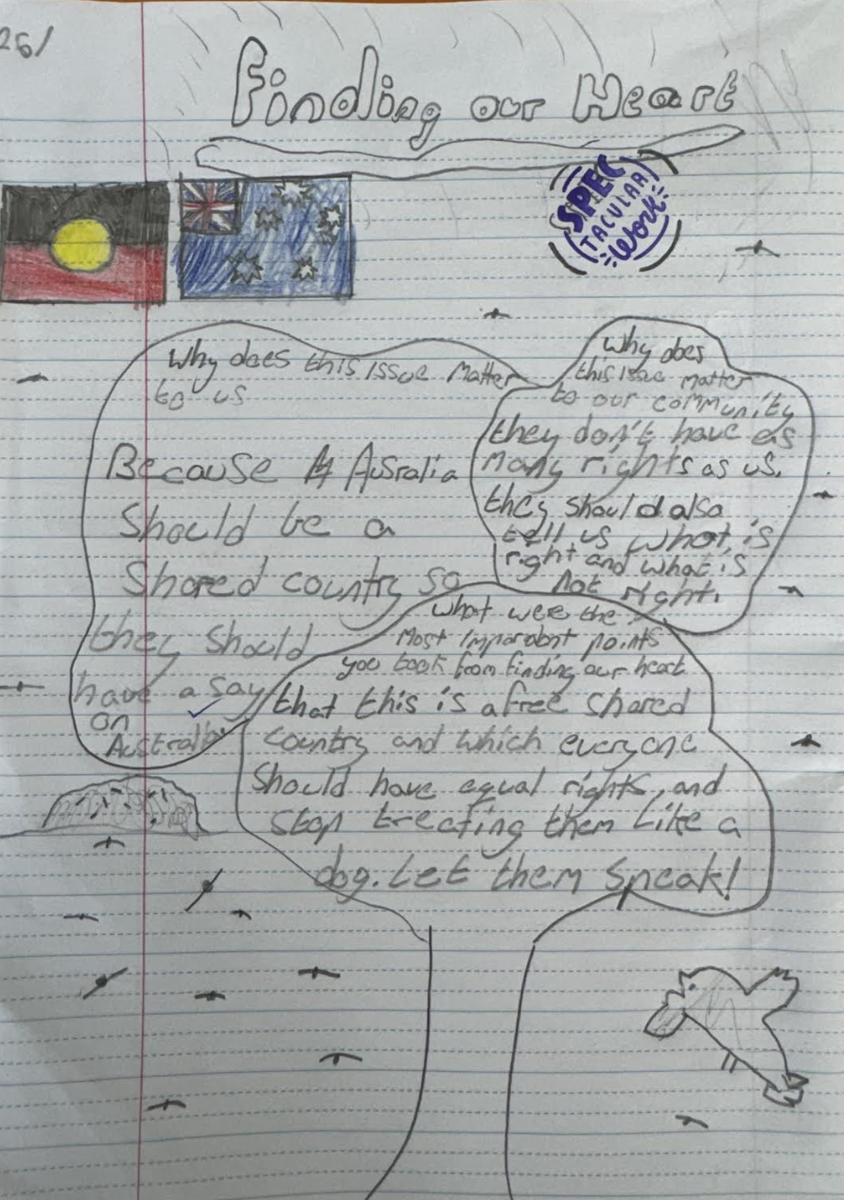 26/
Finding our Heart
SPEC
TACULAR
Work
Why does this issue Matter
to us
Because A Ausralia
Should be a
Shared country so
they should
have a say
on
Australia
Why does
this issue matter
to our community
they don't have as
many rights as us.
they should also
tell us what is
right and what is
not right.
What were the
Most impordant points
you took from finding our heart
that this is a free shared
country and which everyone
Should have equal rights, and
stop treating them like a
dog. Let them speak!